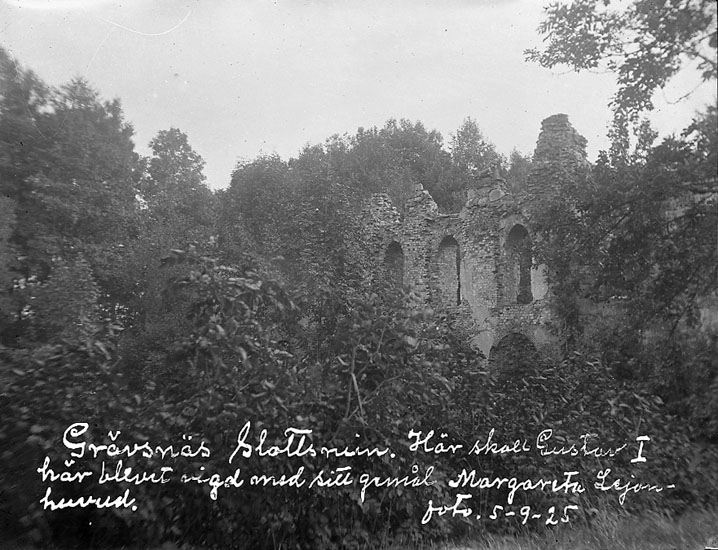 Grävsnäs Slottsruin. Här skall Gustav I
här blevet vigd med sitt gemål Margareta Lejon-
huvud. foto. 5-9-25